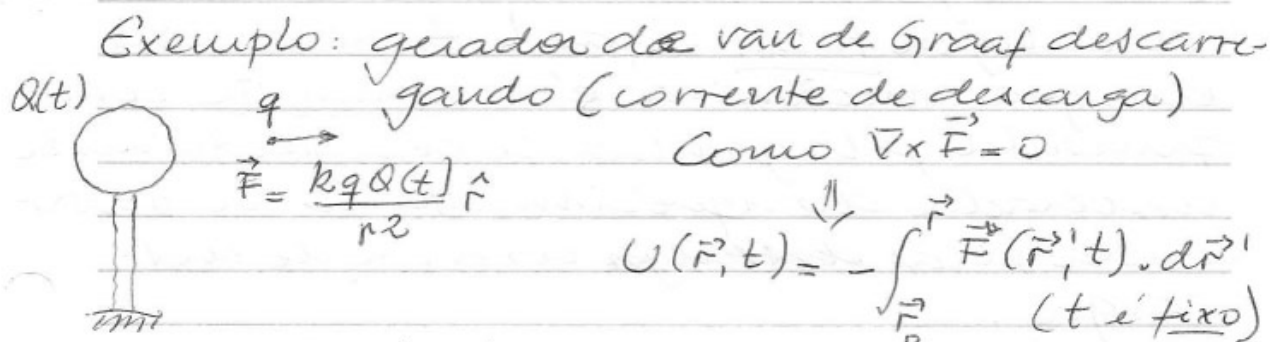 Exemplo: gerador de van de Graaf descarre-
gando (corrente de descarga)
Q(t)
q
Como ∇×F⃗=0
F⃗ = kqQ(t)/r² r̂
⇓
U(r⃗,t) = -∫_{r⃗₀}^{r⃗} F⃗(r⃗',t).dr⃗'
(t é fixo)